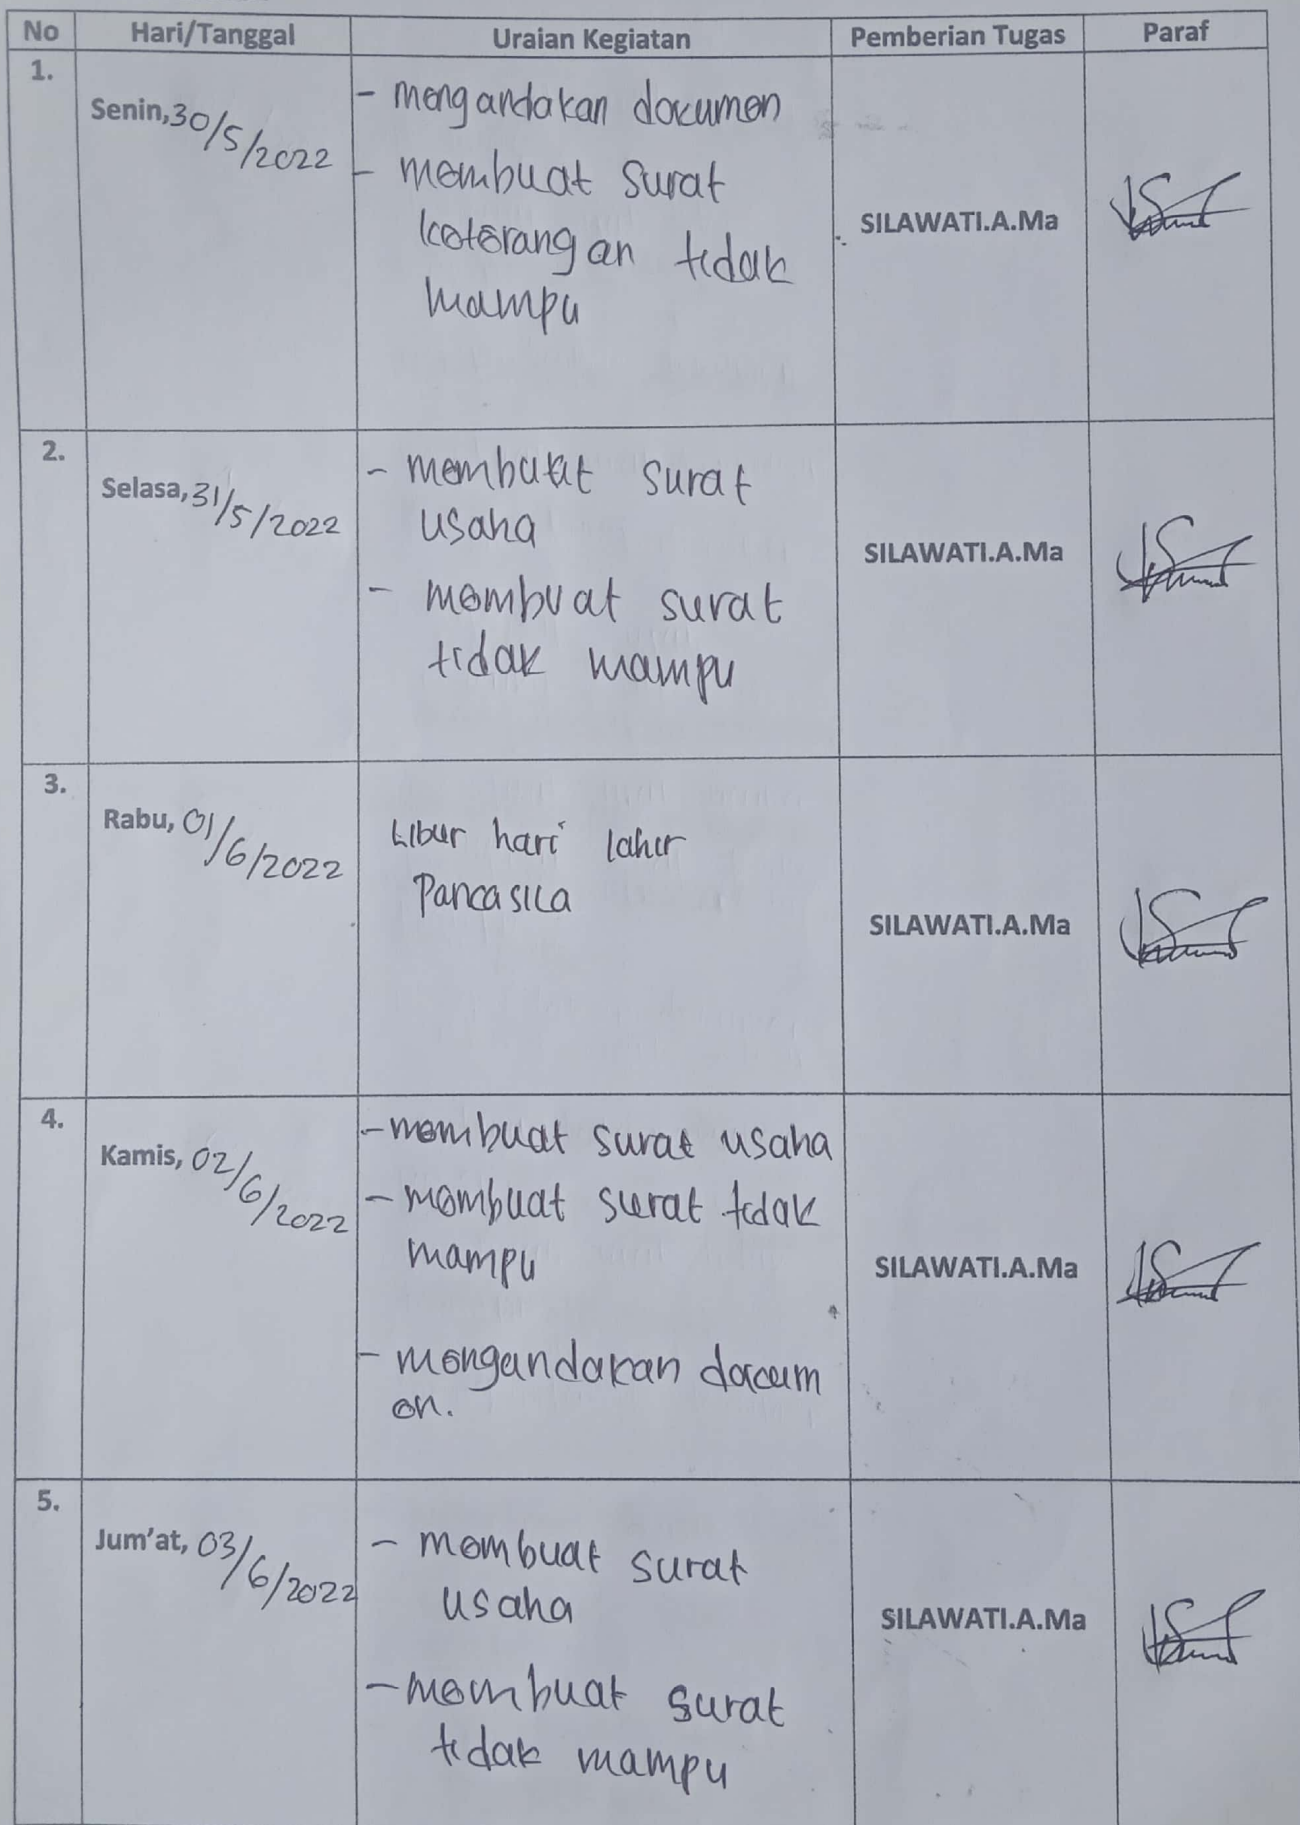 No Hari/Tanggal Uraian Kegiatan Pemberian Tugas Paraf
1.
Senin, 30/5/2022
- mengandakan documen
- membuat surat
keterangan tidak
mampu
SILAWATI.A.Ma
2.
Selasa, 31/5/2022
- membuat surat
usaha
- membuat surat
tidak mampu
SILAWATI.A.Ma
3.
Rabu, 01/6/2022
Libur hari lahir
Pancasila
SILAWATI.A.Ma
4.
Kamis, 02/6/2022
- membuat surat usaha
- membuat surat tidak
mampu
- mengandakan docum
en.
SILAWATI.A.Ma
5.
Jum'at, 03/6/2022
- membuat surat
usaha
- membuat surat
tidak mampu
SILAWATI.A.Ma